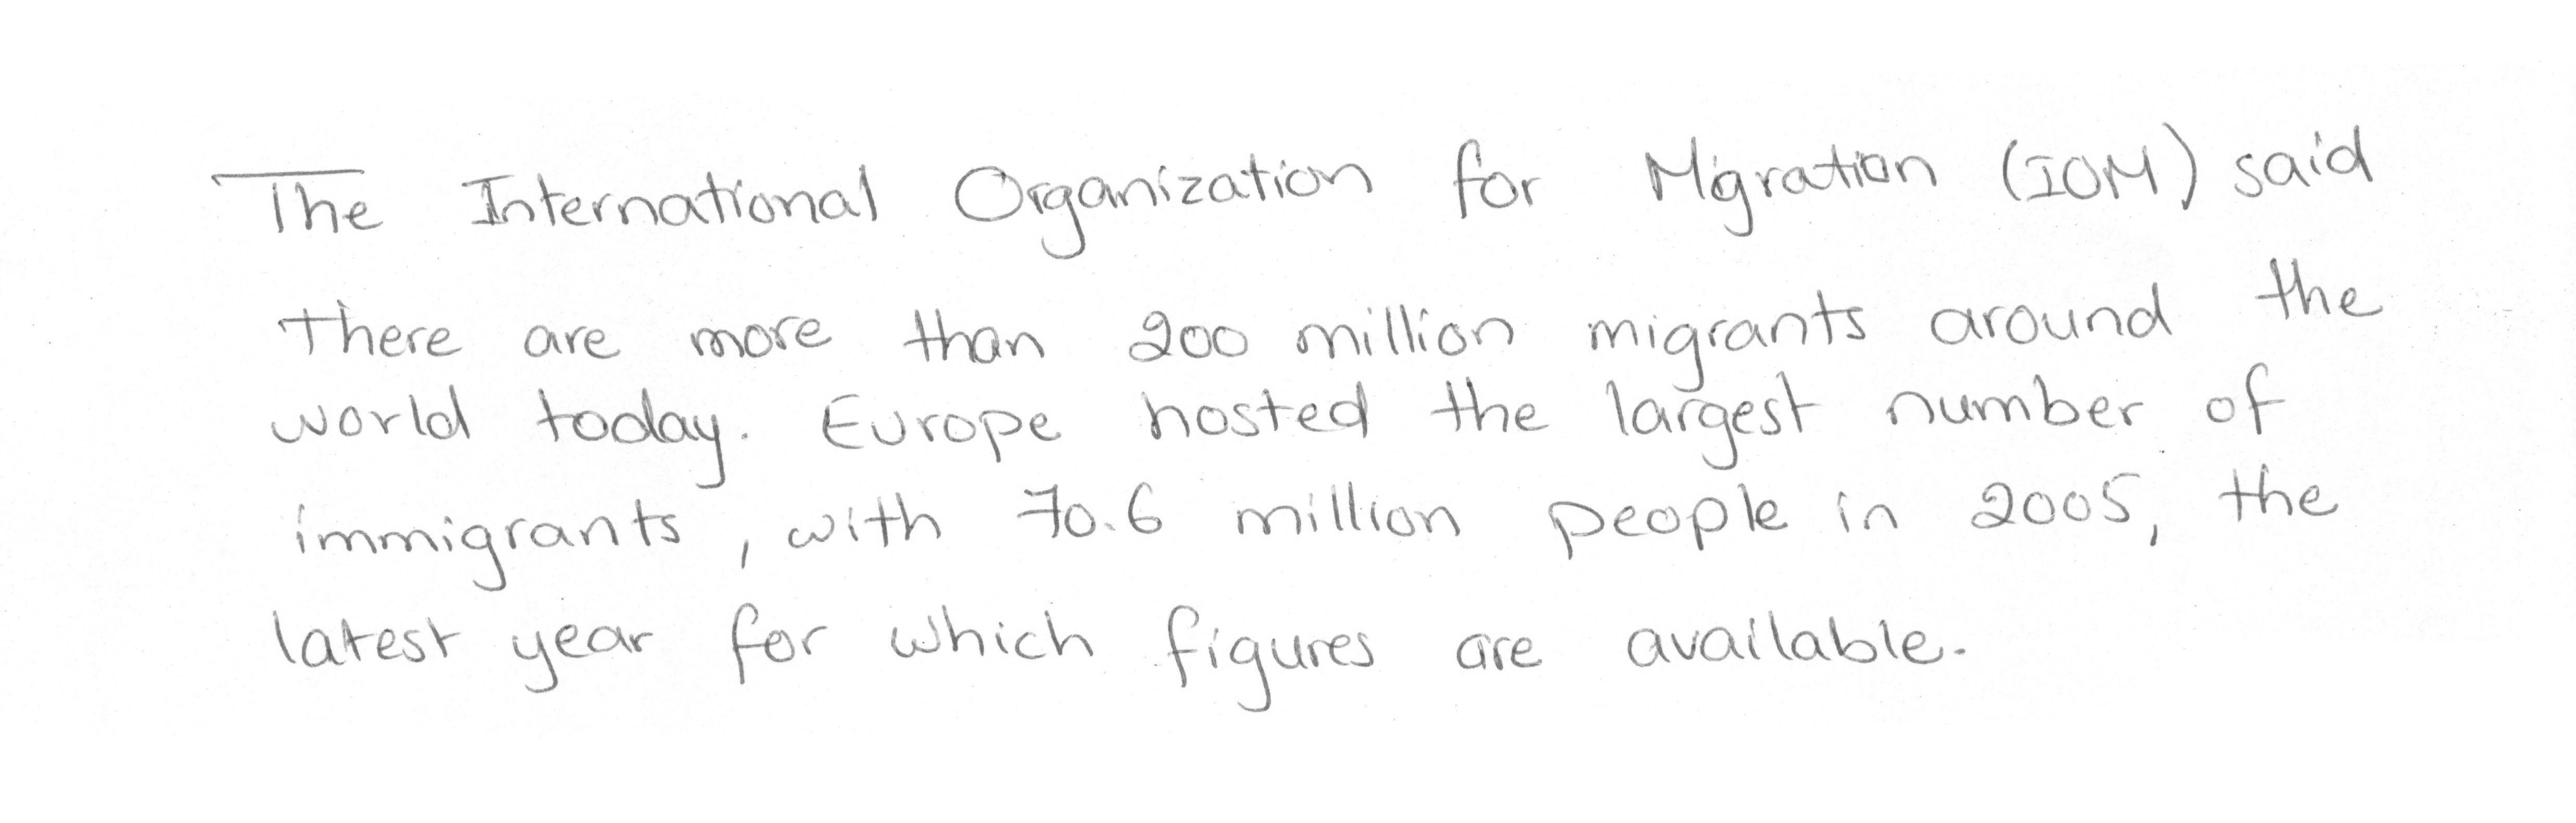 The International Organization for Migration (IOM) said
there are more than 200 million migrants around the
world today. Europe hosted the largest number of
immigrants, with 70.6 million people in 2005, the
latest year for which figures are available.